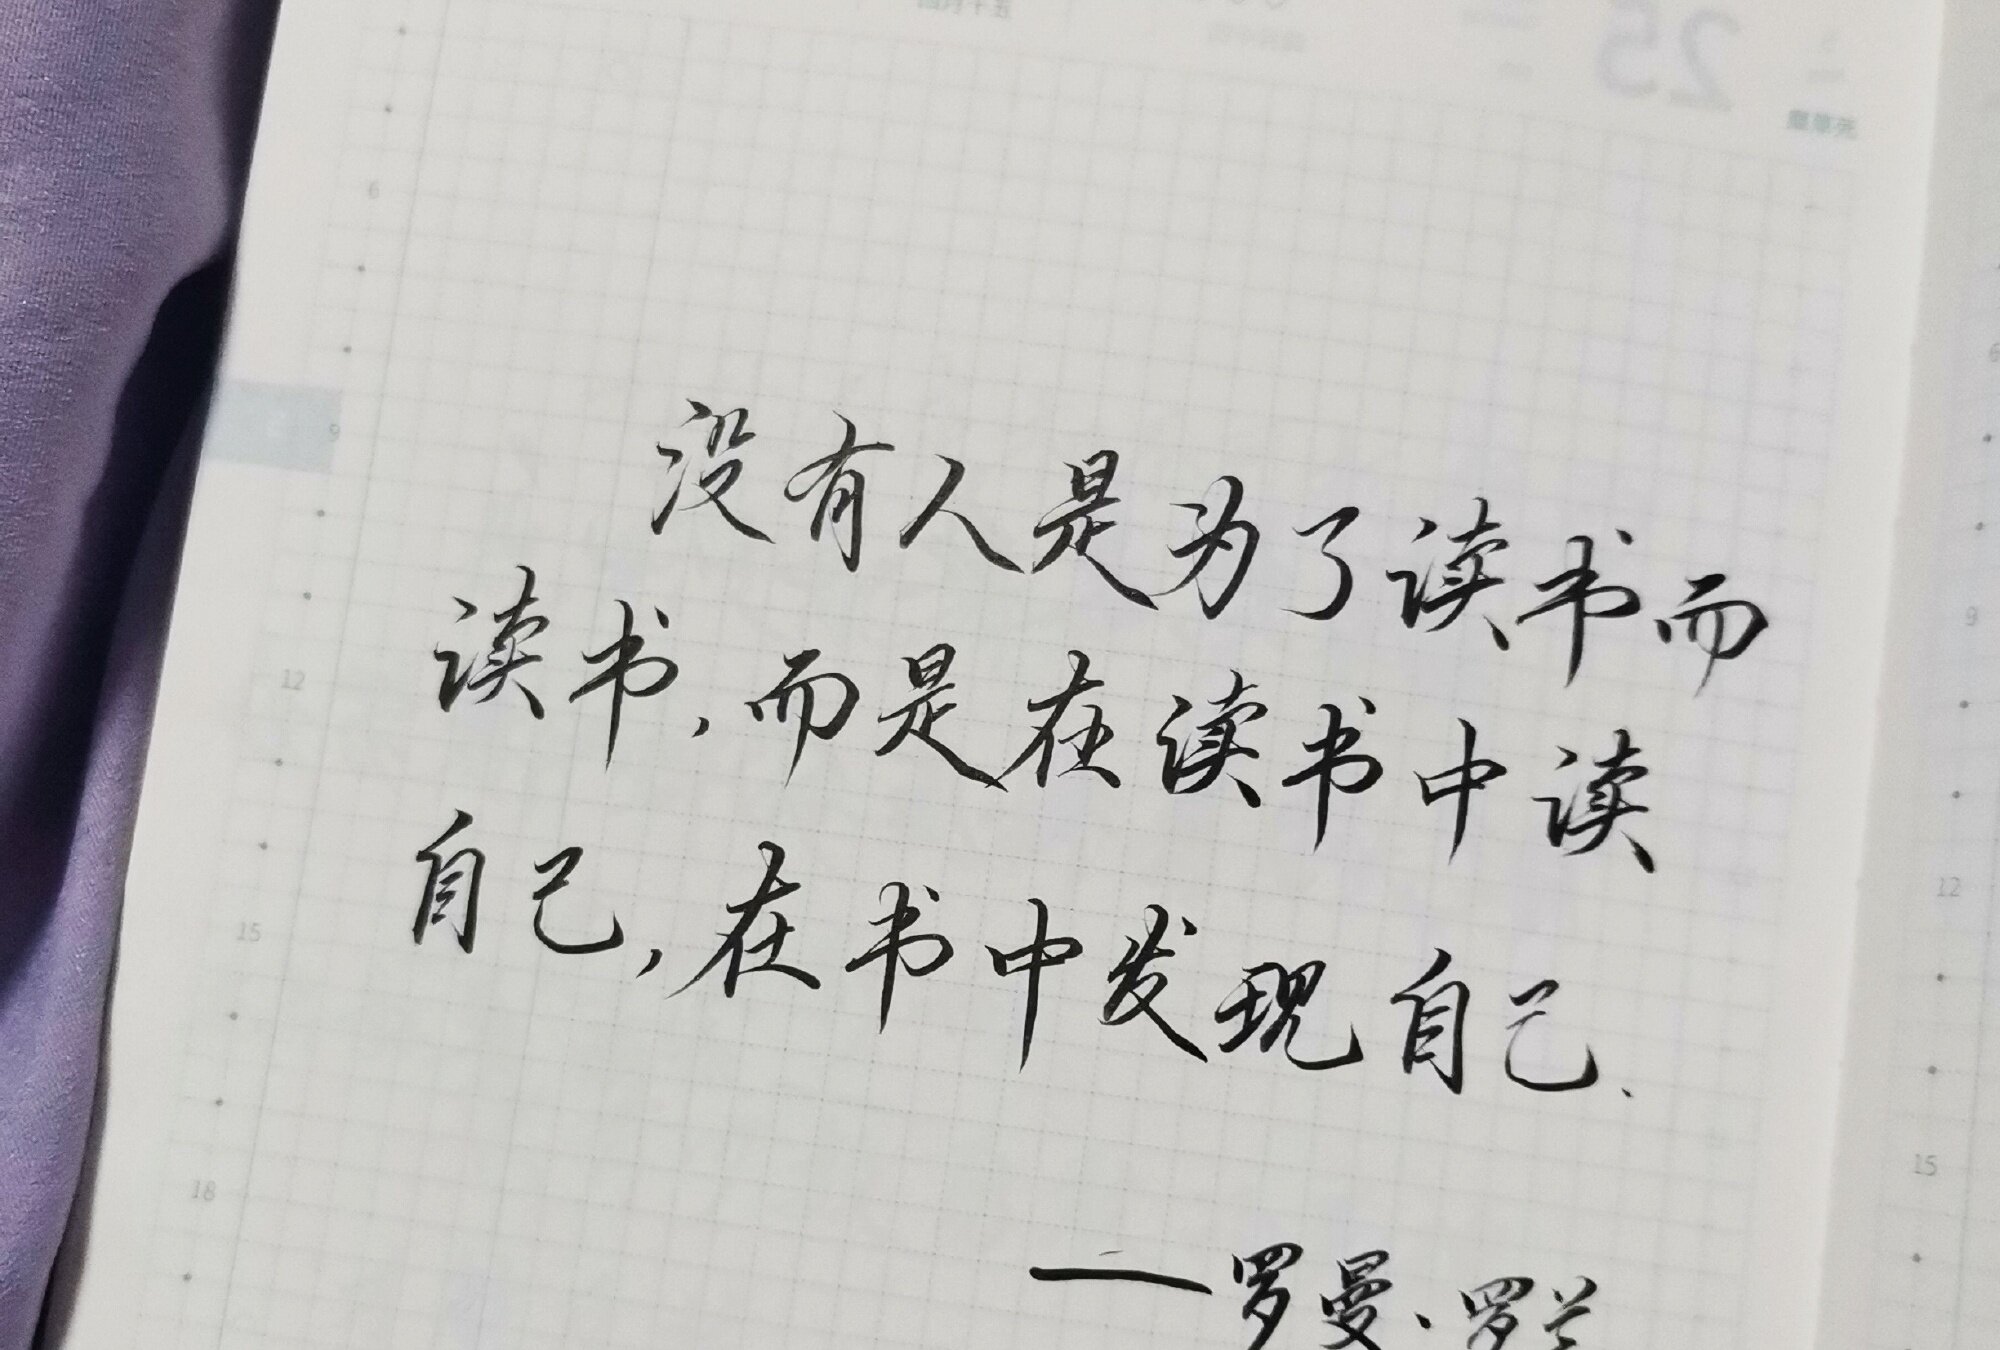 25
6
9
没有人是为了读书而
读书,而是在读书中读
12
自己,在书中发现自己.
15
18
——罗曼·罗兰
9
12
15